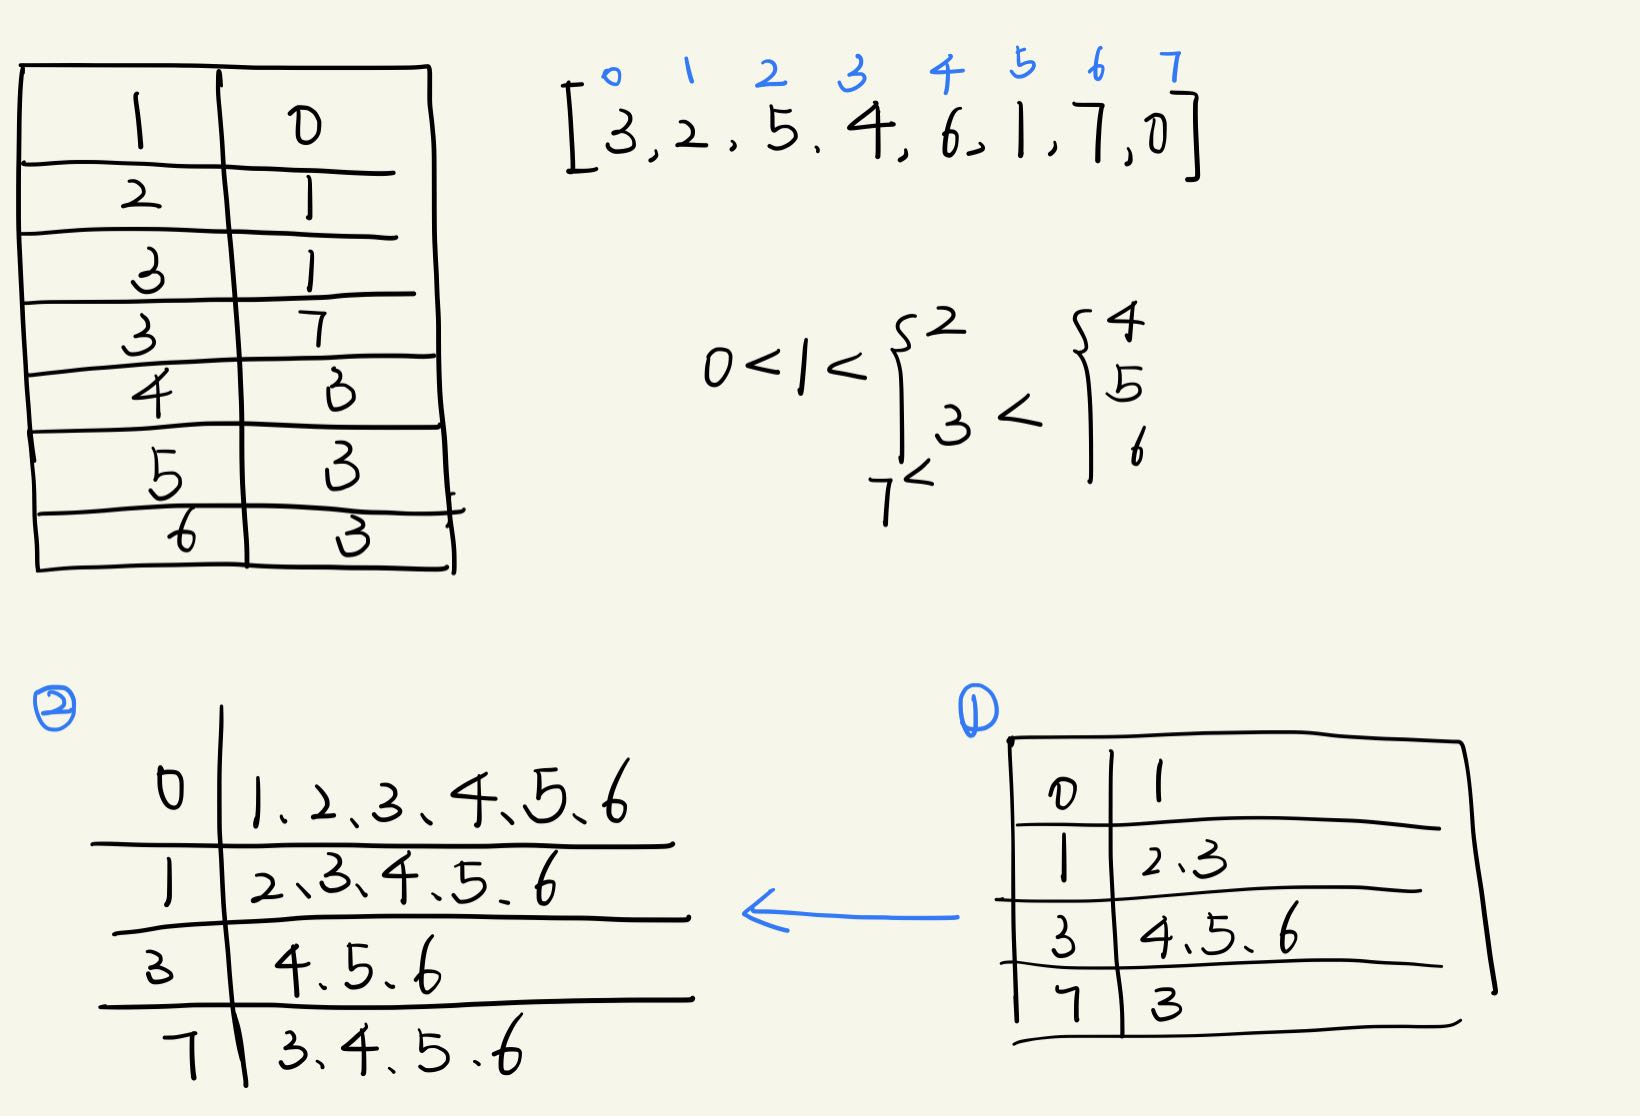 1 0
2 1
3 1
3 7
4 3
5 3
6 3
0 1 2 3 4 5 6 7
[3, 2, 5. 4, 6, 1, 7, 0]
0<1<{2
3<{4
5
6
7<
②
0 1、2、3、4、5、6
1 2、3、4、5、6
3 4、5、6
7 3、4、5、6
①
0 1
1 2、3
3 4、5、6
7 3